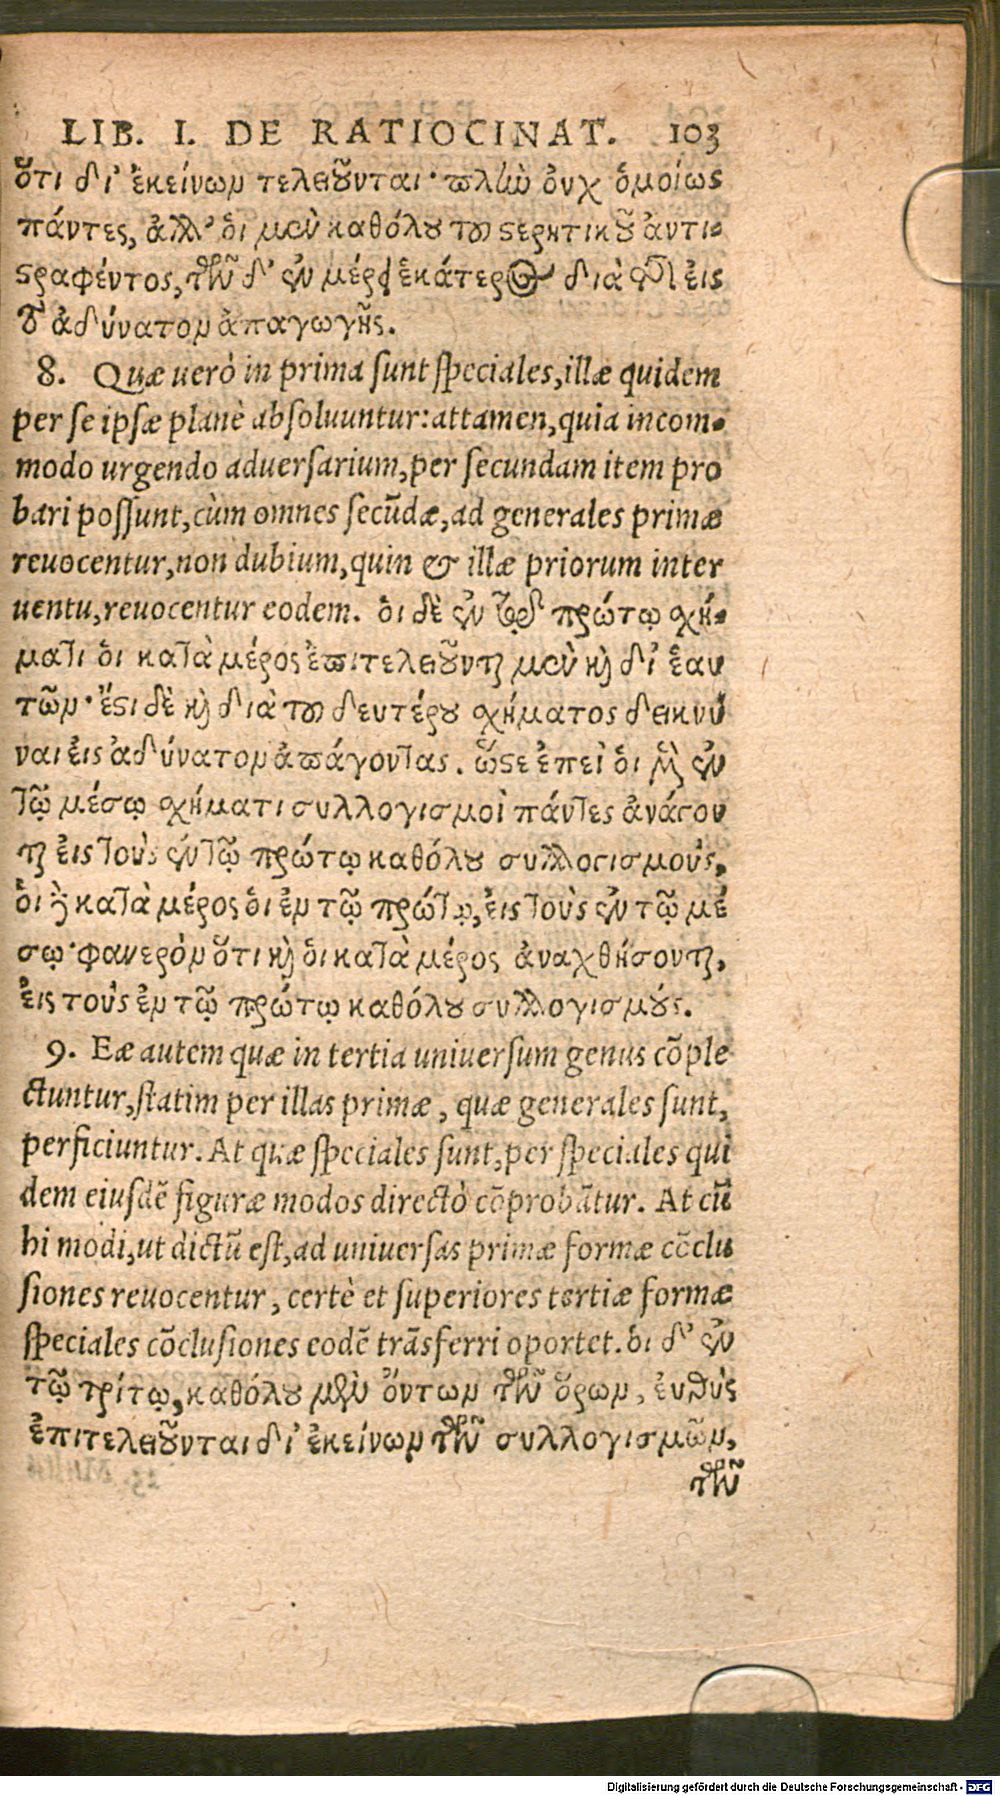 LIB. I. DE RATIOCINAT. 103
ὅτι δι' ἐκείνων τελειοῦνται· πλὴν οὐχ ὁμοίως
πάντες, ἀλλ' οἱ μὲν καθόλου τοῦ στερητικοῦ ἀντι-
στραφέντος, τῶν δ' ἐν μέρει ἑκάτερος διὰ τῆς εἰς
τὸ ἀδύνατον ἀπαγωγῆς.
8. Quæ uerò in prima sunt speciales, illæ quidem
per se ipsæ planè absoluuntur: attamen, quia incom-
modo urgendo aduersarium, per secundam item pro
bari possunt, cùm omnes secũdæ, ad generales primæ
reuocentur, non dubium, quin & illæ priorum inter
uentu, reuocentur eodem. ὁι δὲ ἐν τῷ πρώτῳ σχή-
ματι ὁι κατὰ μέρος ἐπιτελειοῦνται μὲν καὶ δι' ἑαυ
τῶν· ἔστι δὲ καὶ διὰ τοῦ δευτέρου σχήματος δεικνύ
ναι εἰς ἀδύνατον ἀπάγοντας. ὥστε ἐπεὶ ὁι μὲν ἐν
τῷ μέσῳ σχήματι συλλογισμοὶ πάντες ἀνάγον
ται εἰς τοὺς ἐν τῷ πρώτῳ καθόλου συλλογισμούς,
ὁι δὲ κατὰ μέρος ὁι ἐν τῷ πρώτῳ, εἰς τοὺς ἐν τῷ μέ
σῳ· φανερὸν ὅτι καὶ ὁι κατὰ μέρος ἀναχθήσονται,
εἰς τοὺς ἐν τῷ πρώτῳ καθόλου συλλογισμούς.
9. Eæ autem quæ in tertia uniuersum genus cõple
ctuntur, statim per illas primæ, quæ generales sunt,
perficiuntur. At quæ speciales sunt, per speciales qui
dem eiusdẽ figuræ modos directò cõprobãtur. At cũ
hi modi, ut dictũ est, ad uniuersas primæ formæ cõclu
siones reuocentur, certè et superiores tertiæ formæ
speciales cõclusiones eodẽ trãsferri oportet. ὁι δ' ἐν
τῷ τρίτῳ, καθόλου μὲν ὄντων τῶν ὅρων, ἐυθὺς
ἐπιτελειοῦνται δι' ἐκείνων τῶν συλλογισμῶν,
τῶν
Digitalisierung gefördert durch die Deutsche Forschungsgemeinschaft - DFG